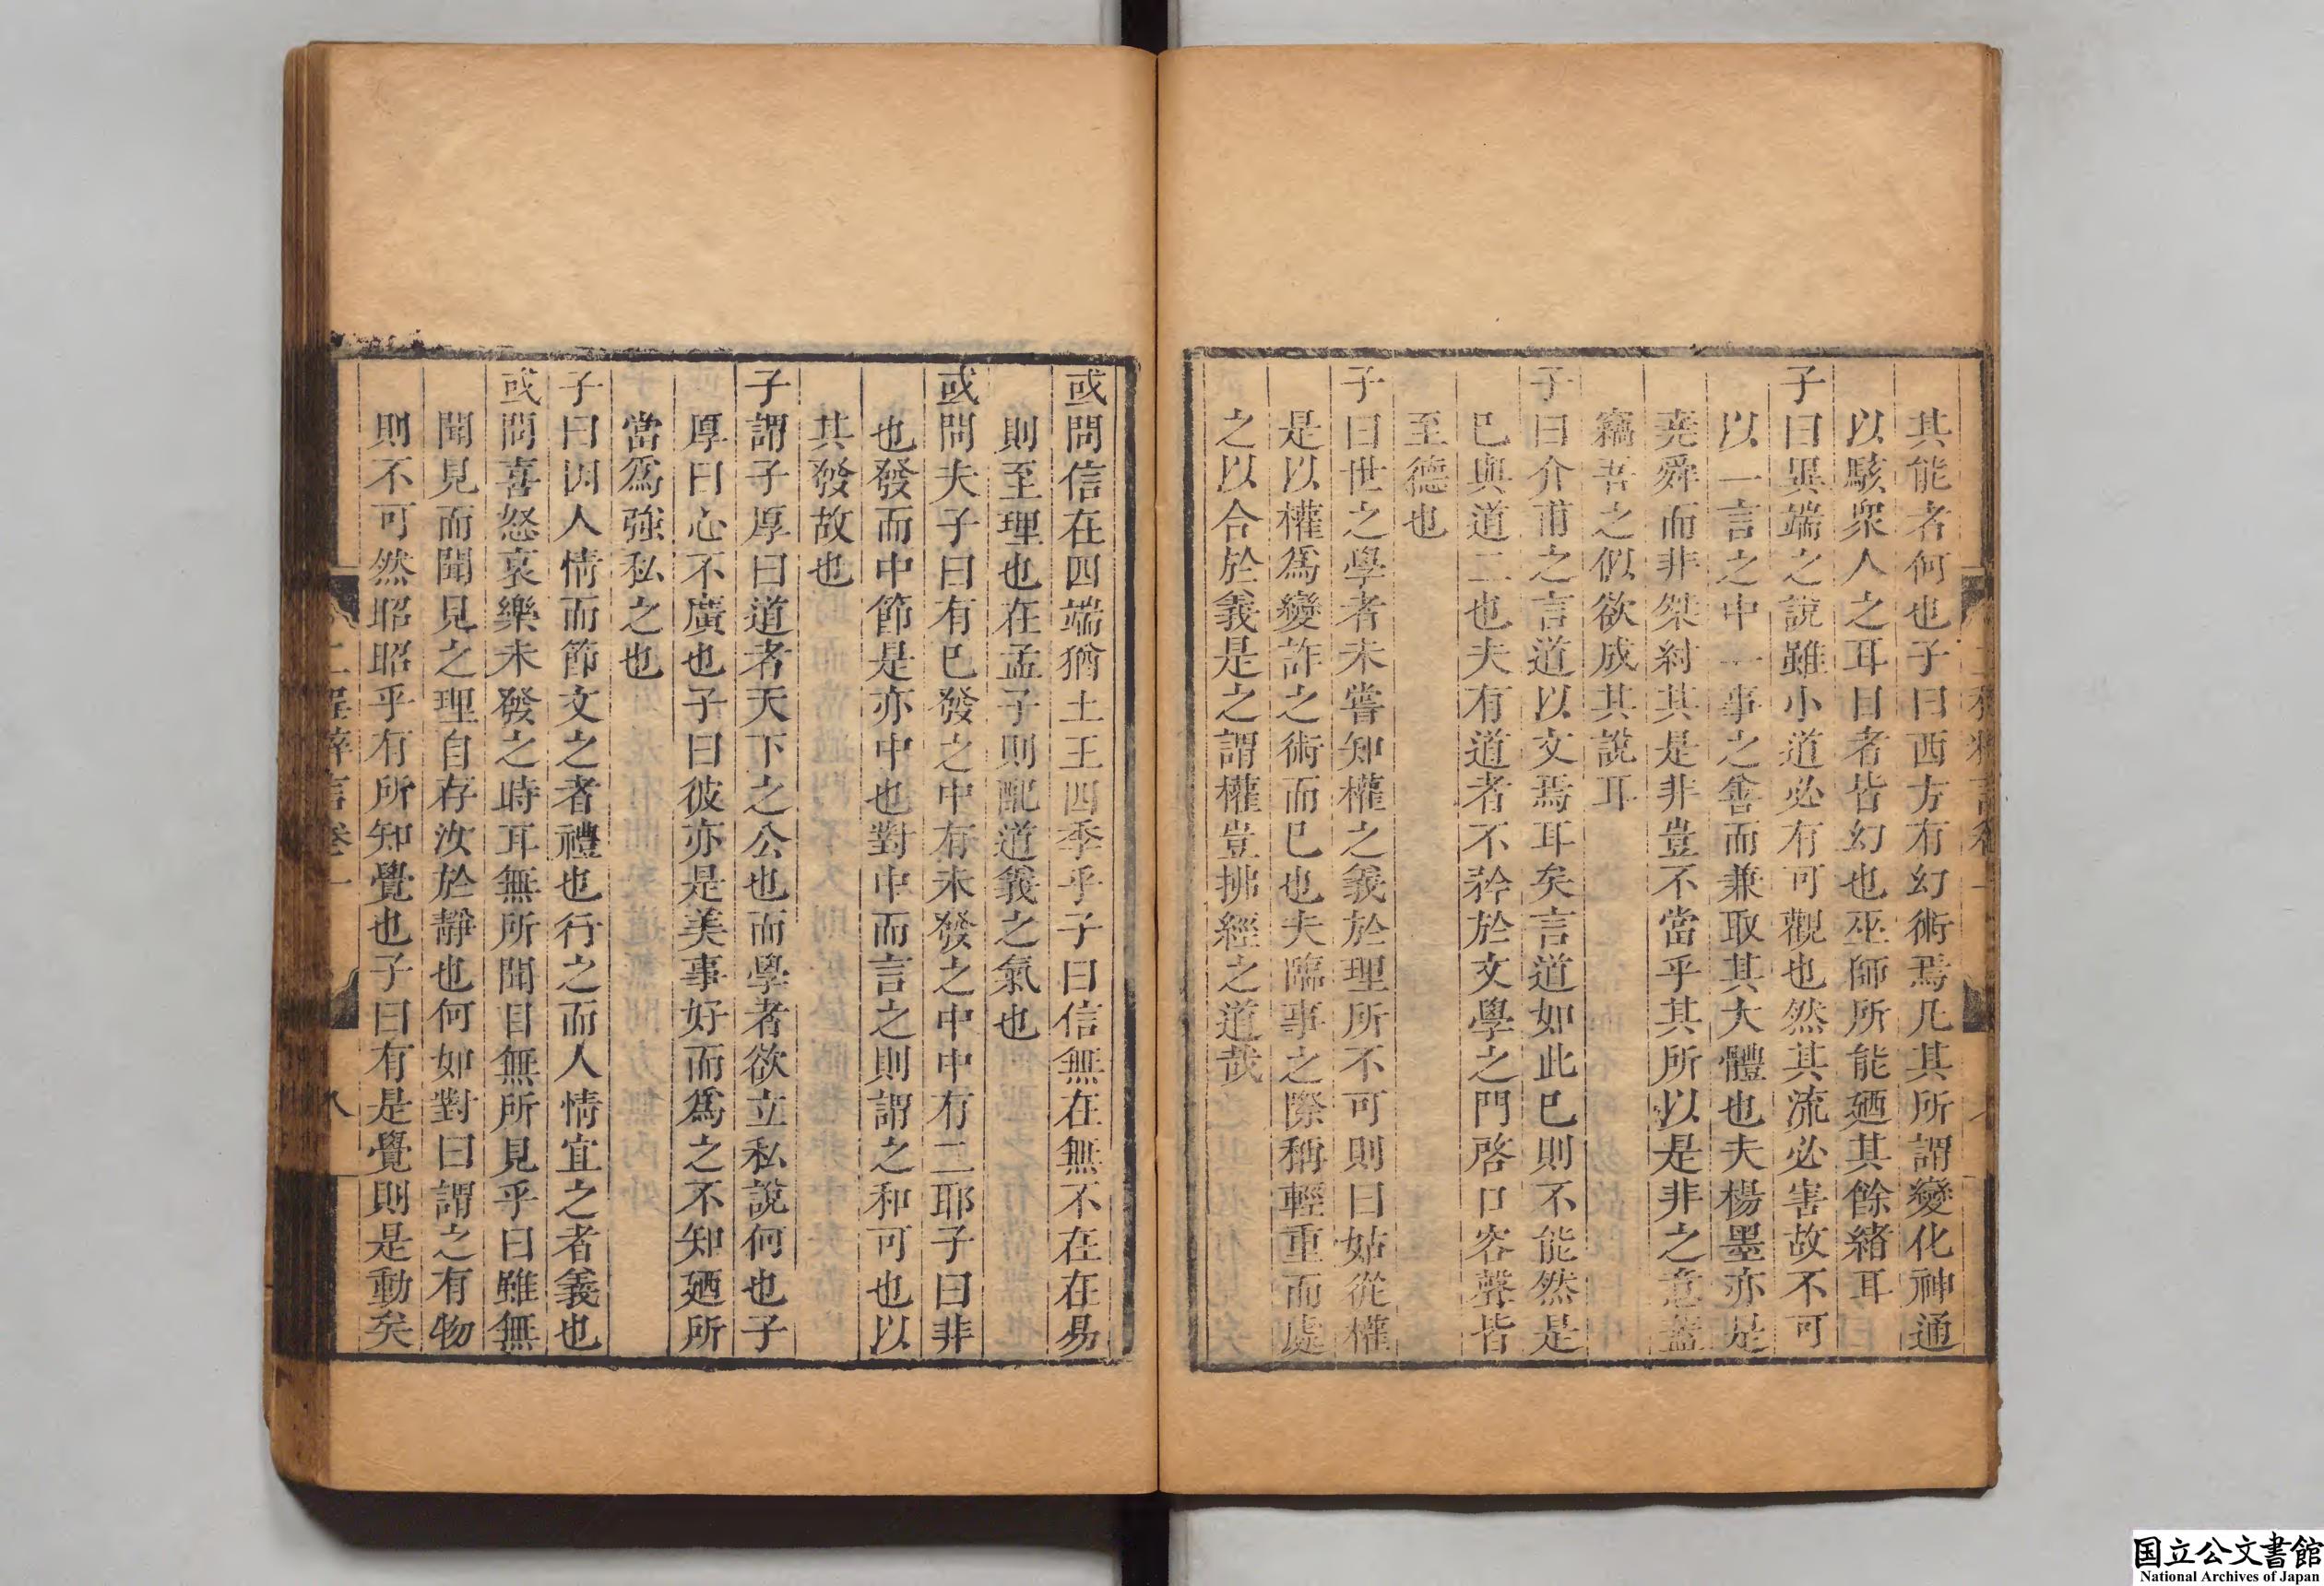 其能者何也子曰西方有幻術焉凡其所謂變化神通
以駭衆人之耳目者皆幻也巫師所能廼其餘緒耳
子曰異端之說雖小道必有可觀也然其流必害故不可
以一言之中一事之善而兼取其大體也夫楊墨亦是
堯舜而非桀紂其是非豈不當乎其所以是非之意蓋
竊吾之似欲成其說耳
子曰介甫之言道以文焉耳矣言道如此已則不能然是
已與道二也夫有道者不矜於文學之門啓口容聲皆
至德也
子曰世之學者未嘗知權之義於理所不可則曰姑從權
是以權爲變詐之術而已也夫臨事之際稱輕重而處
之以合於義是之謂權豈拂經之道哉
或問信在四端猶土王四季乎子曰信無在無不在在易
則至理也在孟子則配道義之氣也
或問夫子曰有已發之中有未發之中中有二耶子曰非
也發而中節是亦中也對中而言之則謂之和可也以
其發故也
子謂子厚曰道者天下之公也而學者欲立私說何也子
厚曰心不廣也子曰彼亦是美事好而爲之不知廼所
當爲強私之也
子曰因人情而節文之者禮也行之而人情宜之者義也
或問喜怒哀樂未發之時耳無所聞目無所見乎曰雖無
聞見而聞見之理自存汝於靜也何如對曰謂之有物
則不可然昭昭乎有所知覺也子曰有是覺則是動矣
二程粹言卷一
八
国立公文書館
National Archives of Japan